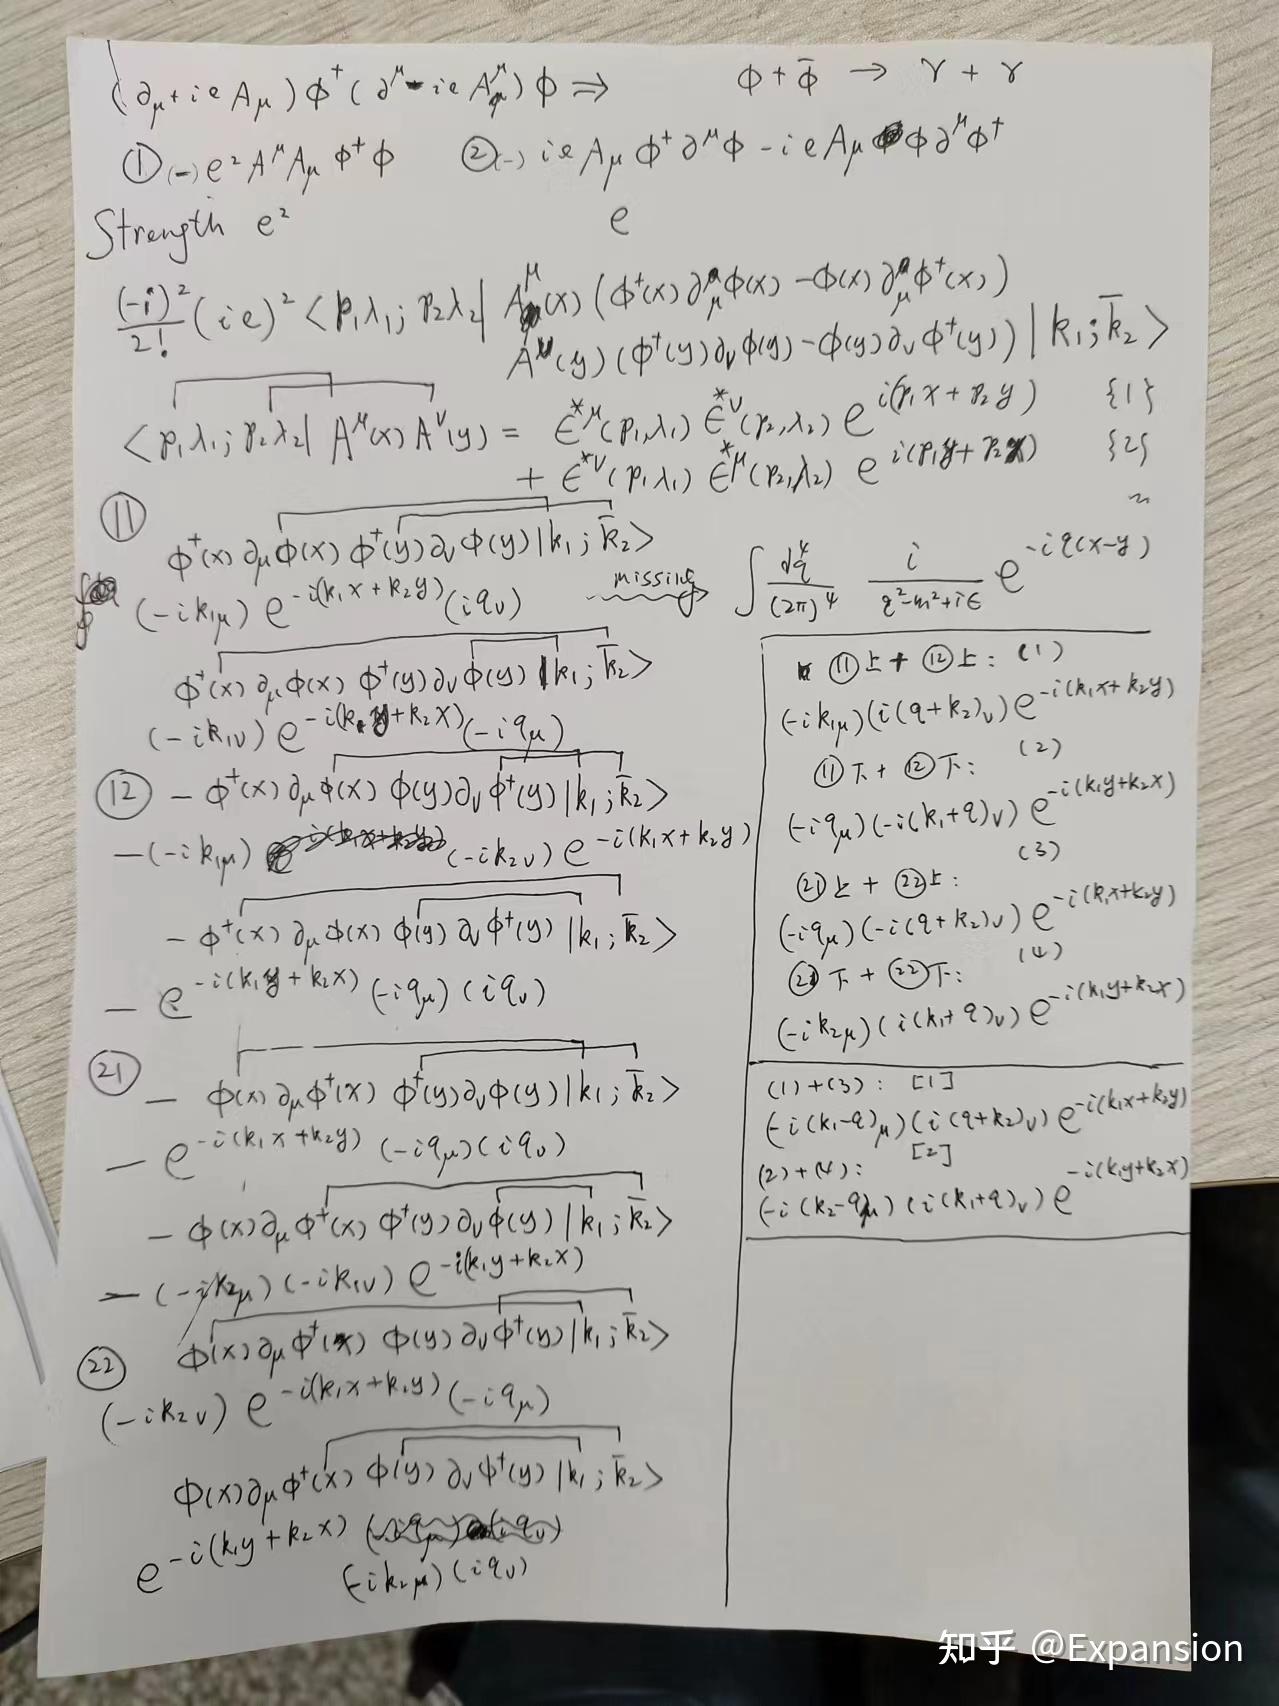 (∂μ + ieAμ)ϕ†(∂^μ - ieA^μ)ϕ ⇒ ϕ + ϕ̄ → γ + γ
① (-) e² A^μ Aμ ϕ†ϕ ② (-) ieAμ ϕ†∂^μϕ - ieAμ ϕ∂^μϕ†
Strength e² e
(-i)²/2! (ie)² <p₁λ₁; p₂λ₂| A^μ(x) (ϕ†(x)∂μϕ(x) - ϕ(x)∂μϕ†(x))
A^ν(y) (ϕ†(y)∂νϕ(y) - ϕ(y)∂νϕ†(y)) |k₁; k̄₂>
<p₁λ₁; p₂λ₂| A^μ(x) A^ν(y) = ϵ*^μ(p₁,λ₁) ϵ*^ν(p₂,λ₂) e^{i(p₁x + p₂y)} {1}
+ ϵ*^ν(p₁λ₁) ϵ*^μ(p₂,λ₂) e^{i(p₁y + p₂x)} {2}
⑪ ϕ†(x) ∂μϕ(x) ϕ†(y) ∂νϕ(y) |k₁; k̄₂>
(-ik₁μ) e^{-i(k₁x + k₂y)} (iqν) missing → ∫ d⁴q/(2π)⁴ i/(q²-m²+iϵ) e^{-iq(x-y)}
ϕ†(x) ∂μϕ(x) ϕ†(y) ∂νϕ(y) |k₁; k̄₂>
(-ik₁ν) e^{-i(k₁y + k₂x)} (-iqμ)
⑫ - ϕ†(x) ∂μϕ(x) ϕ(y) ∂νϕ†(y) |k₁; k̄₂>
-(-ik₁μ) (-ik₂ν) e^{-i(k₁x + k₂y)}
- ϕ†(x) ∂μϕ(x) ϕ(y) ∂νϕ†(y) |k₁; k̄₂>
- e^{-i(k₁y + k₂x)} (-iqμ) (iqν)
㉑ - ϕ(x) ∂μϕ†(x) ϕ†(y) ∂νϕ(y) |k₁; k̄₂>
- e^{-i(k₁x + k₂y)} (-iqμ) (iqν)
- ϕ(x) ∂μϕ†(x) ϕ†(y) ∂νϕ(y) |k₁; k̄₂>
- (-ik₂μ) (-ik₁ν) e^{-i(k₁y + k₂x)}
㉒ ϕ(x) ∂μϕ†(x) ϕ(y) ∂νϕ†(y) |k₁; k̄₂>
(-ik₂ν) e^{-i(k₁x + k₁y)} (-iqμ)
ϕ(x) ∂μϕ†(x) ϕ(y) ∂νϕ†(y) |k₁; k̄₂>
e^{-i(k₁y + k₂x)}
(-ik₂μ) (iqν)
⑪上 + ⑫上: (1)
(-ik₁μ)(i(q+k₂)ν) e^{-i(k₁x + k₂y)}
⑪下 + ⑫下: (2)
(-iqμ)(-i(k₁+q)ν) e^{-i(k₁y+k₂x)}
(3)
㉑上 + ㉒上:
(-iqμ)(-i(q+k₂)ν) e^{-i(k₁x+k₂y)}
(4)
㉑下 + ㉒下:
(-ik₂μ)(i(k₁+q)ν) e^{-i(k₁y+k₂x)}
(1)+(3): [1]
(-i(k₁-q)μ)(i(q+k₂)ν) e^{-i(k₁x+k₂y)}
(2)+(4): [2]
(-i(k₂-q)μ)(i(k₁+q)ν) e^{-i(k₁y+k₂x)}
知乎 @Expansion